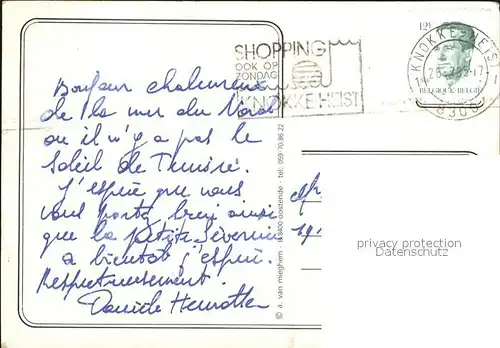 Bonjour chaleureux
de la mer du Nord
ou il n'y a pas le
soleil de Tunisie.
J'espère que vous
vous portez bien ainsi
que la petite Séverine
a bientot j'espère.
Respectueusement.
Daniele
SHOPPING
OOK OP
ZONDAG
KNOKKE-HEIST
12F
BELGIQUE-BELGIË
KNOKKE-HEIST
8300
© a. van mieghem - b-8400 oostende - tel. 059-70.86.22
privacy protection
DanielsMedia